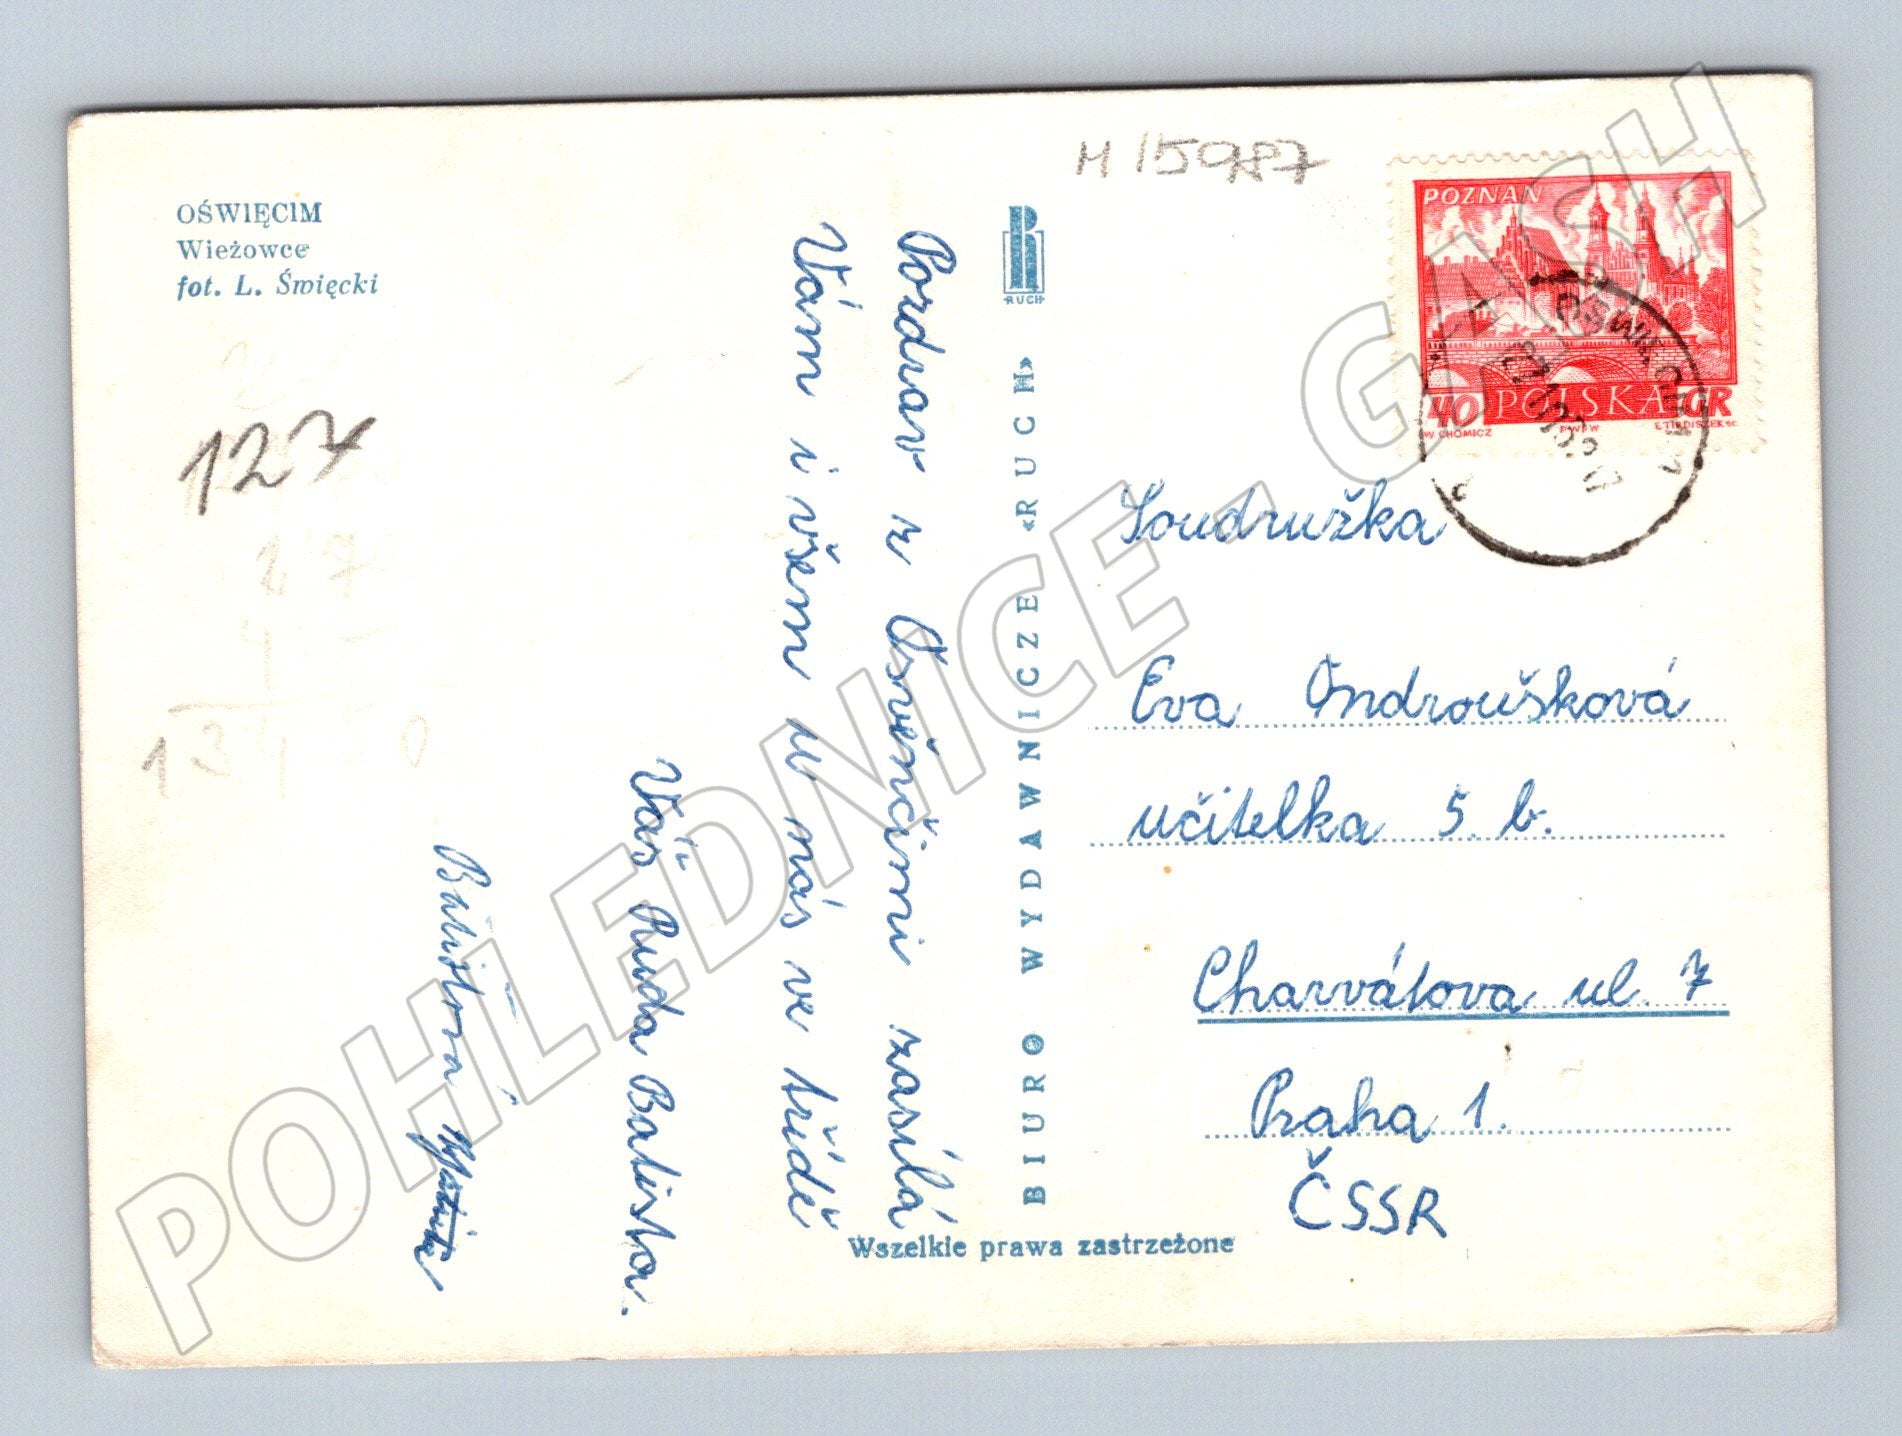 OŚWIĘCIM
Wieżowce
fot. L. Święcki
127
Pozdrav z Osvěnčimi zasílá
Vám i všem u nás ve třídě
Váš Ruda Batista.
Batistová
BIURO WYDAWNICZE «RUCH»
RUCH
Wszelkie prawa zastrzeżone
M 15987
POZNAŃ
40 POLSKA GR
W. CHOMICZ PWPW E. TIRDISZEK sc.
Soudružka
Eva Ondroušková
učitelka 5. b.
Charvátova ul. 7
Praha 1.
ČSSR
POHLEDNICE - GASH